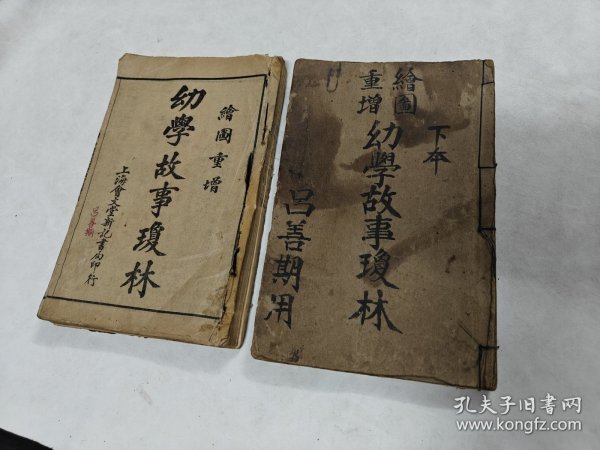 繪圖重增
幼學故事瓊林
上海會文堂新記書局印行
繪圖
重增
幼學故事瓊林
下本
呂善期用
孔夫子旧书网
www.kongfz.com